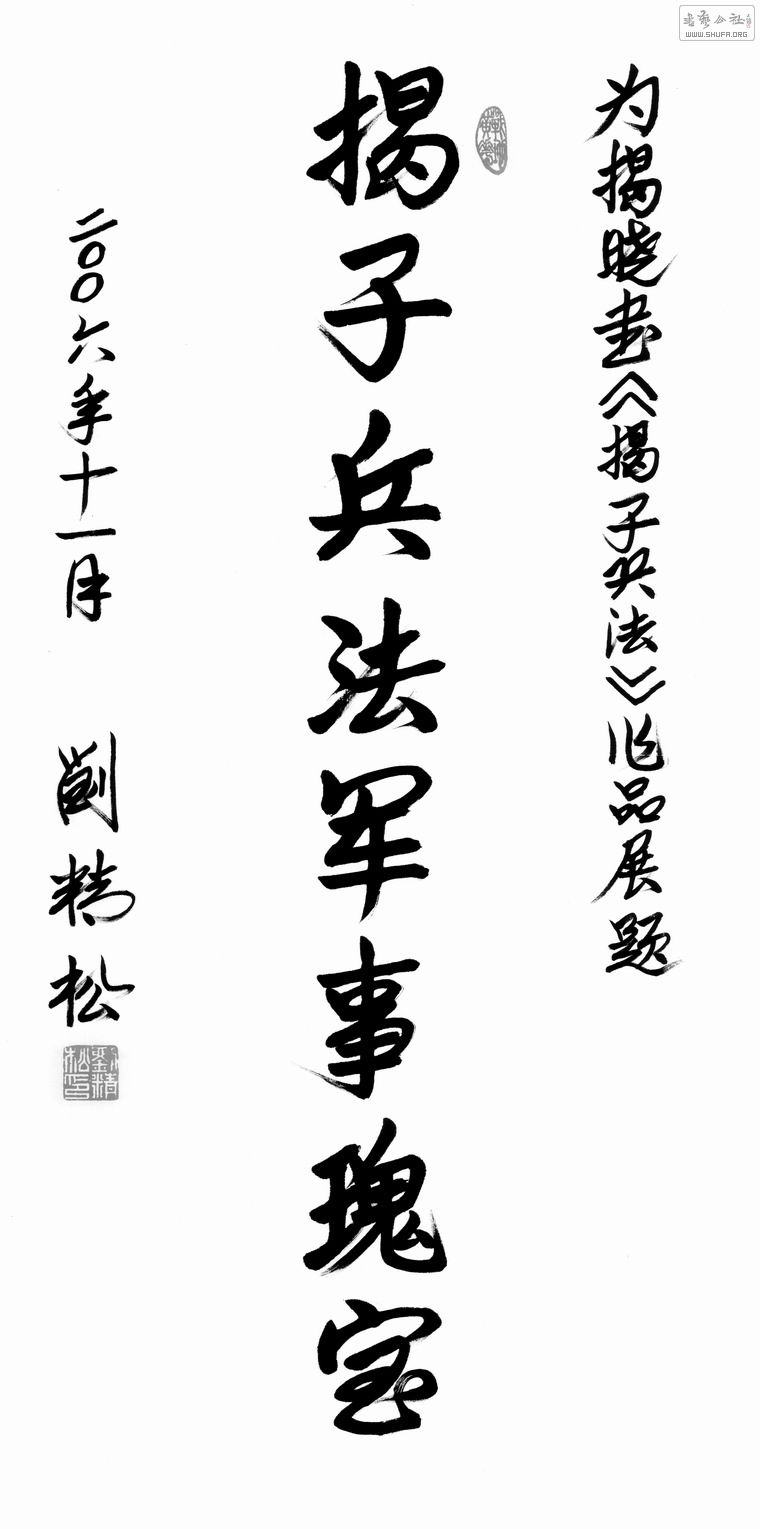 为揭晓书《揭子兵法》作品展题
揭子兵法军事瑰宝
二〇〇六年十一月 劉精松
書藝公社
WWW.SHUFA.ORG